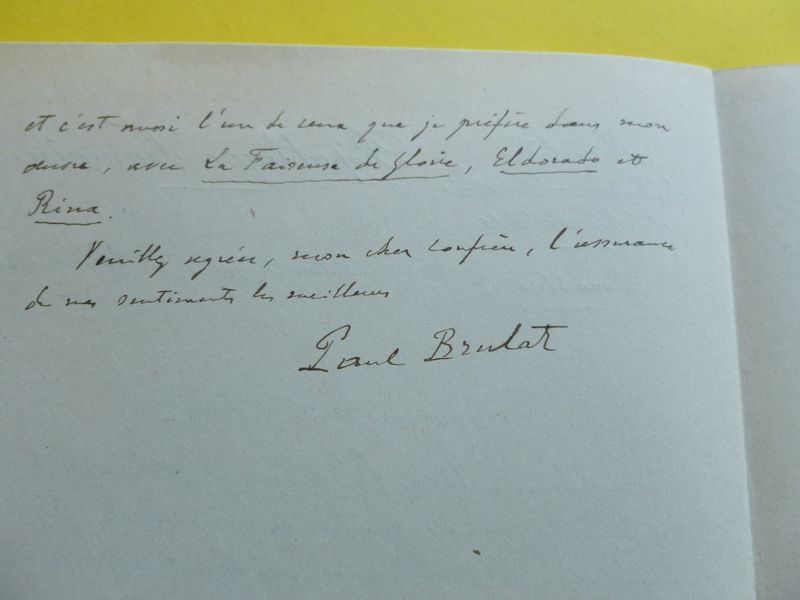 et c'est aussi l'un de ceux que je préfère dans mon
œuvre, avec La Faiseuse de Gloire, Eldorado et
Rina.
Veuillez agréer, mon cher confrère, l'assurance
de mes sentiments les meilleurs
Paul Brulat